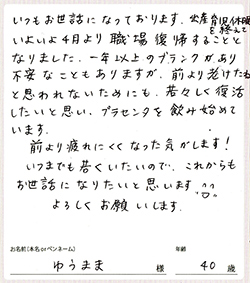 いつもお世話になっております。出産育児休暇
を終えて
いよいよ4月より職場復帰することと
なりました。一年以上のブランクがあり
不安なこともありますが、前より老けたな
と思われないためにも、若々しく復活
したいと思い、プラセンタを飲み始めて
います。
前より疲れにくくなった気がします!
いつまでも若くいたいので、これからも
お世話になりたいと思います。
よろしくお願いします。
お名前(本名orペンネーム)
年齢
ゆうまま 様
40 歳